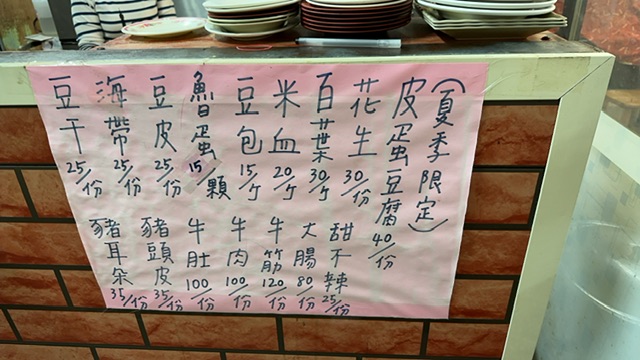 (夏季限定)
皮蛋豆腐 40/份
花生 30/份
百葉 30/ㄅ
米血 20/ㄅ
豆包 15/ㄅ
魯蛋 15/顆
豆皮 25/份
海帶 25/份
豆干 25/份
甜不辣 25/份
大腸 80/份
牛筋 120/份
牛肉 100/份
牛肚 100/份
豬頭皮 35/份
豬耳朵 35/份